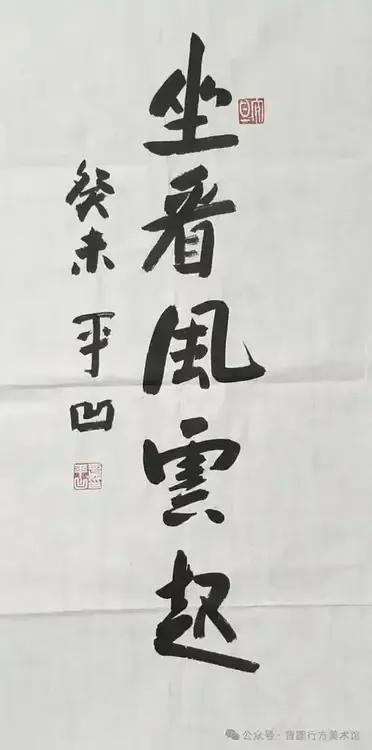 坐看風雲起
癸未 平凹
公众号·晋圆行方美术馆